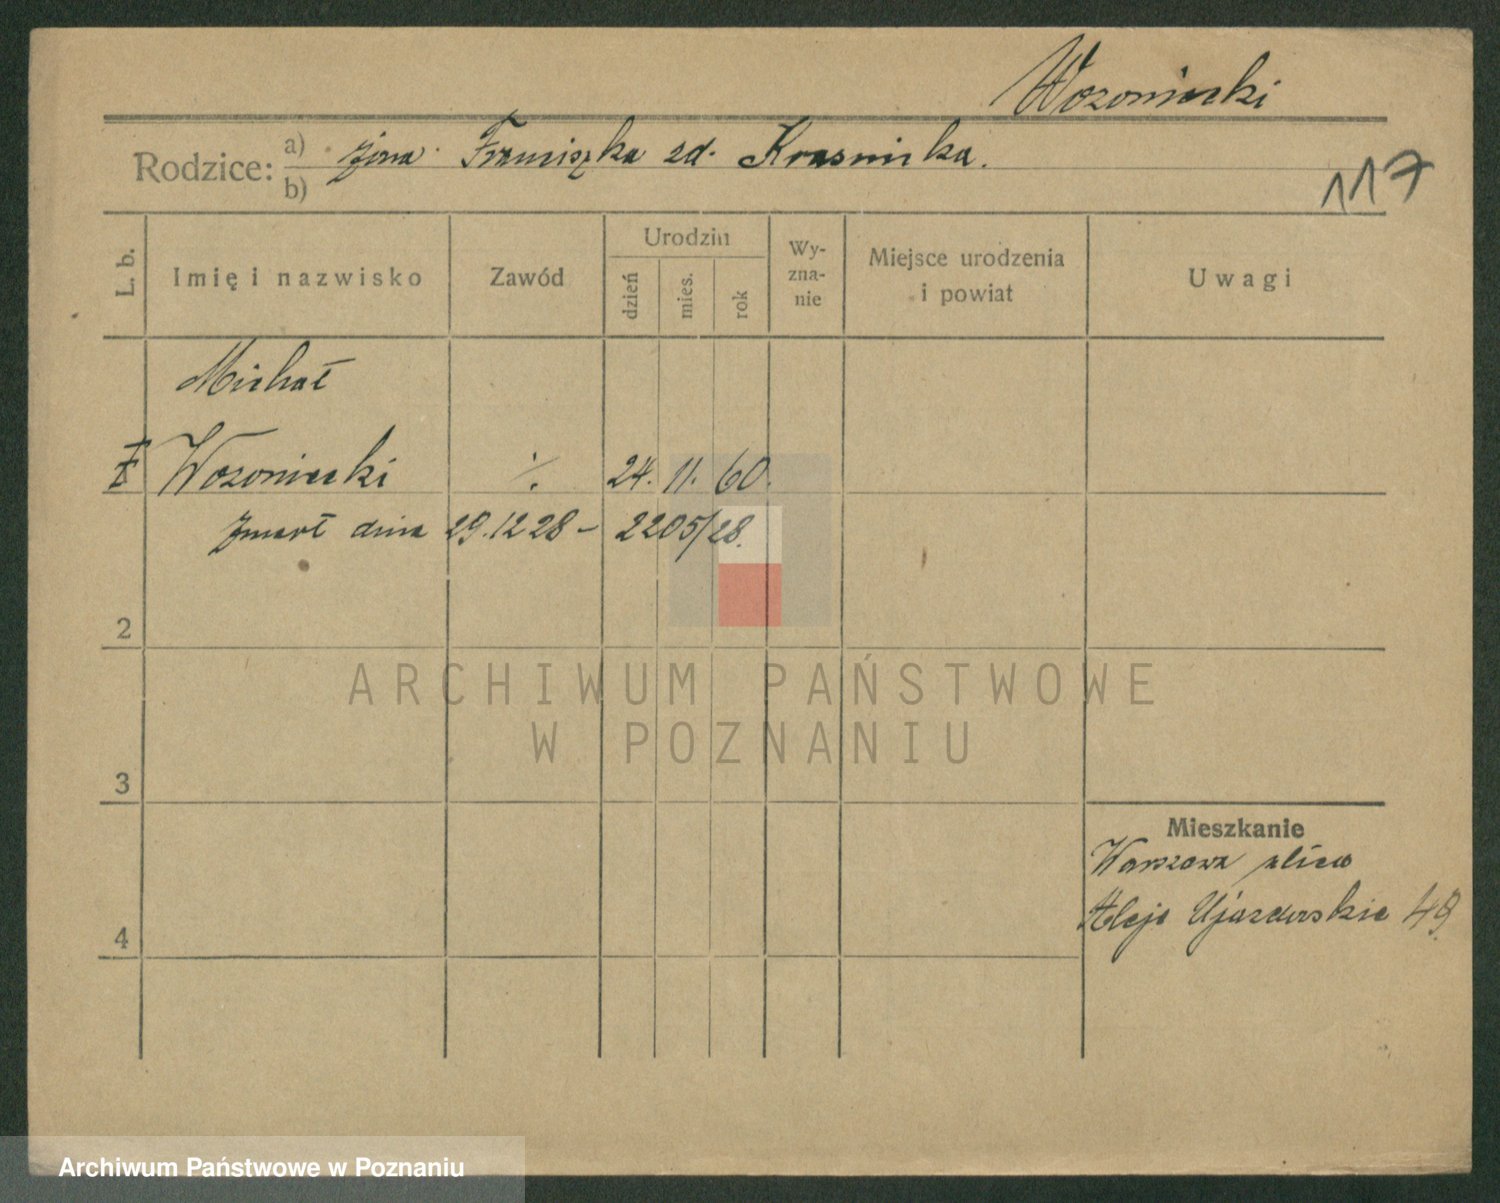 Wozoniecki
Rodzice: a) żona Franciszka zd. Krasnicka.
b)
117
L. b.
Imię i nazwisko
Zawód
Urodzin
dzień
mies.
rok
Wy-
zna-
nie
Miejsce urodzenia
i powiat
Uwagi
Michał
Wozoniecki ./. 24. 11. 60.
Zmarł dnia 29.12 28 – 2205/28.
2
3
4
Mieszkanie
Warszawa ulica
Aleje Ujazdowskie 49.
ARCHIWUM PAŃSTWOWE
W POZNANIU
Archiwum Państwowe w Poznaniu